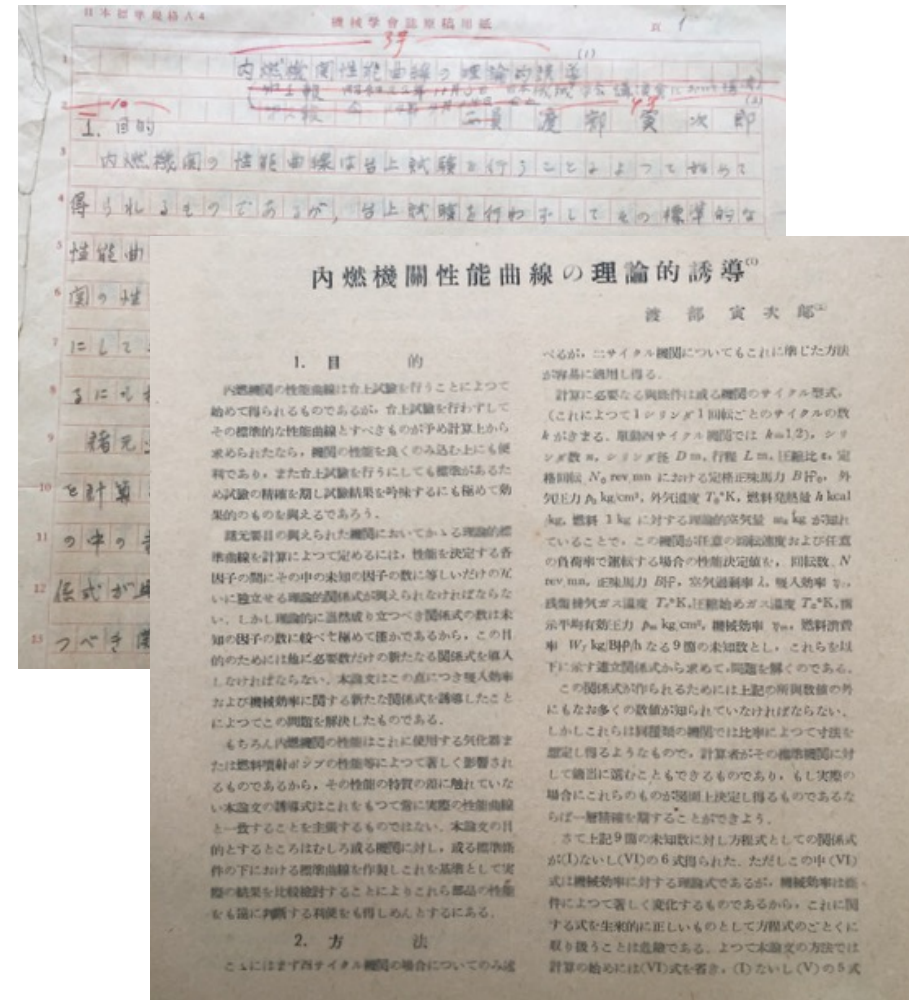 日本標準規格A4
機械学會誌原稿用紙
頁 1
39
内燃機関性能曲線の理論的誘導(1)
渡部寅次郎(2)
1. 目的
内燃機関の性能曲線は台上試験を行うことによつて始めて
得られるものであるが,台上試験を行わずしてその標準的な
性能曲
関の性
にして
るにも
諸元
を計算
の中の
係式が
つべき関
內燃機關性能曲線の理論的誘導(1)
渡部寅次郎(2)
1. 目的
内燃機関の性能曲線は台上試験を行うことによつて
始めて得られるものであるが,台上試験を行わずして
その標準的な性能曲線とすべきものが予め計算上から
求められたなら,機関の性能を良くのみ込む上にも便
利であり,また台上試験を行うにしても標準があるた
め試験の精確を期し試験結果を吟味するにも極めて効
果的のものを與えるであろう.
諸元要目の與えられた機関においてかゝる理論的標
準曲線を計算によつて定めるには,性能を決定する各
因子の間にその中の未知の因子の数に等しいだけの互
いに独立せる理論的関係式が與えられなければならな
い.しかし理論的に当然成り立つべき関係式の数は未
知の因子の数に較べて極めて僅かであるから,この目
的のためには他に必要数だけの新たなる関係式を導入
しなければならない.本論文はこの点につき吸入効率
および機械効率に関する新たな関係式を誘導したこと
によつてこの問題を解決したものである.
もちろん内燃機関の性能はこれに使用する気化器ま
たは燃料噴射ポンプの性能等によつて著しく影響され
るものであるから,その性能の特質の差に触れていな
い本論文の誘導式はこれをもつて常に実際の性能曲線
と一致することを主張するものではない.本論文の目
的とするところはむしろ或る機関に対し,或る標準條
件の下における標準曲線を作製しこれを基準として実
際の結果を比較検討することによりこれら部品の性能
をも遙に判断する利便をも得しめんとするにある.
2. 方法
こゝにはまず四サイクル機関の場合についてのみ述
べるが,二サイクル機関についてもこれに準じた方法
が容易に適用し得る.
計算に必要なる與條件は或る機関のサイクル型式,
(これによつて1シリンダ1回転ごとのサイクルの数
kがきまる.單動四サイクル機関では k=1/2),シリ
ンダ数 n,シリンダ径 D m,行程 L m,圧縮比 ε,定
格回転 N₀ rev mn における定格正味馬力 BHP₀,外
気圧力 p₀ kg/cm²,外気温度 T₀°K,燃料発熱量 h kcal
/kg,燃料 1kg に対する理論的空気量 m₀ kg が知れ
ていることで,この機関が任意の回転速度および任意
の負荷率で運転する場合の性能決定値を,回転数,N
rev mn,正味馬力 BHP,空気過剰率 λ,吸入効率
残留排気ガス温度 圧縮始めガス温度 指
示平均有効圧力 kg cm²,機械効率 燃料消費
率 kg/BHP/h なる9箇の未知数とし,これらを以
下に示す連立関係式から求めて,問題を解くのである.
この関係式が作られるためには上記の所與数値の外
にもなお多くの数値が知られていなければならない.
しかしこれらは同種類の機関では比率によつて寸法を
想定し得るようなもので,計算者がその標準機関に対
して適当に選むこともできるものであり,もし実際の
場合にこれらのものが図面上決定し得るものであるな
らば一層精確を期することができよう.
さて上記9箇の未知数に対し方程式としての関係式
が(I)ないし(VI)の6式得られた.ただしこの中(VI)
式は機械効率に対する理論式であるが,機械効率は條
件によつて著しく変化するものであるから,これに関
する式を生来的に正しいものとして方程式のごとくに
取り扱うことは危険である.よつて本論文の方法では
計算の始めには(VI)式を省き,(I)ないし(V)の5式